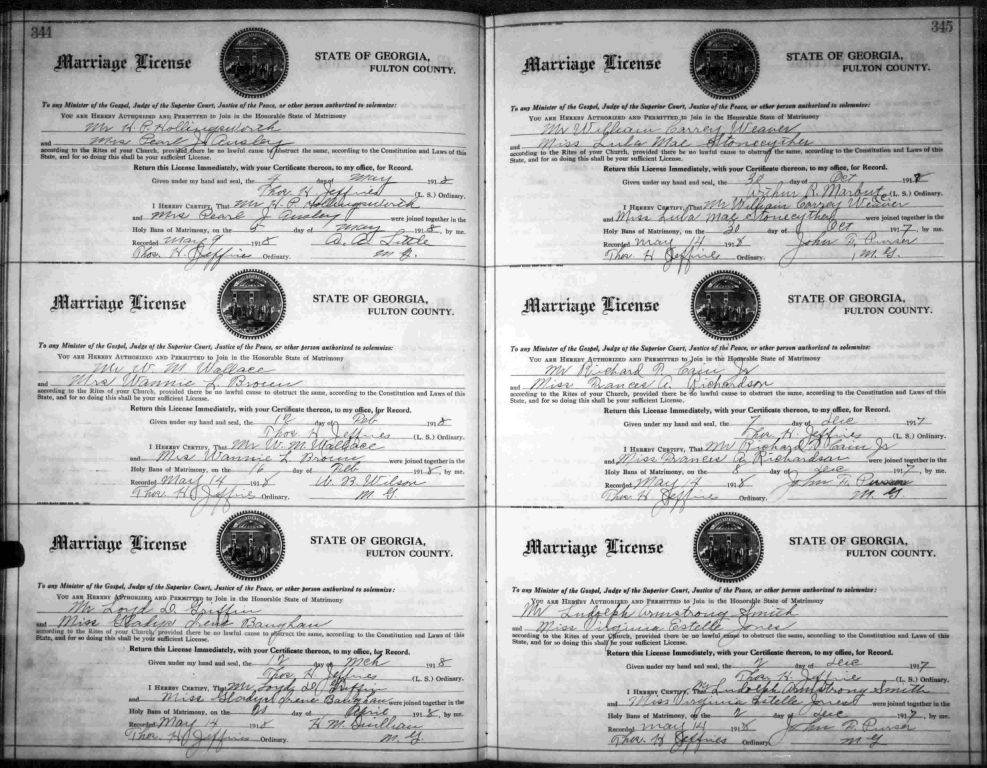 344
Marriage License
STATE OF GEORGIA,
FULTON COUNTY.
To any Minister of the Gospel, Judge of the Superior Court, Justice of the Peace, or other person authorized to solemnize:
YOU ARE HEREBY AUTHORIZED AND PERMITTED to Join in the Honorable State of Matrimony
Mr H. P. Hollingsworth
and Mrs Pearl J Ansley
according to the Rites of your Church, provided there be no lawful cause to obstruct the same, according to the Constitution and Laws of this
State, and for so doing this shall be your sufficient License.
Return this License Immediately, with your Certificate thereon, to my office, for Record.
Given under my hand and seal, the day of May 1918
Thos. H. Jeffries (L. S.) Ordinary.
I HEREBY CERTIFY, That Mr H. P. Hollingsworth
and Mrs Pearl J Ansley were joined together in the
Holy Bans of Matrimony, on the 5 day of May 1918, by me.
Recorded May 9 1918 A. A. Little
Thos. H. Jeffries Ordinary. M. G.
Marriage License
STATE OF GEORGIA,
FULTON COUNTY.
To any Minister of the Gospel, Judge of the Superior Court, Justice of the Peace, or other person authorized to solemnize:
YOU ARE HEREBY AUTHORIZED AND PERMITTED to Join in the Honorable State of Matrimony
Mr W. M. Wallace
and Mrs Wannie L Brown
according to the Rites of your Church, provided there be no lawful cause to obstruct the same, according to the Constitution and Laws of this
State, and for so doing this shall be your sufficient License.
Return this License Immediately, with your Certificate thereon, to my office, for Record.
Given under my hand and seal, the 12 day of Feb 1918
Thos H. Jeffries (L. S.) Ordinary.
I HEREBY CERTIFY, That Mr W. M. Wallace
and Mrs Wannie L Brown were joined together in the
Holy Bans of Matrimony, on the 16 day of Feb 1918, by me.
Recorded May 14 1918 W. B. Wilson
Thos. H Jeffries Ordinary. M. G
Marriage License
STATE OF GEORGIA,
FULTON COUNTY.
To any Minister of the Gospel, Judge of the Superior Court, Justice of the Peace, or other person authorized to solemnize:
YOU ARE HEREBY AUTHORIZED AND PERMITTED to Join in the Honorable State of Matrimony
Mr Loyd D. Griffin
and Miss Gladys Irene Baughan
according to the Rites of your Church, provided there be no lawful cause to obstruct the same, according to the Constitution and Laws of this
State, and for so doing this shall be your sufficient License.
Return this License Immediately, with your Certificate thereon, to my office, for Record.
Given under my hand and seal, the 12 day of Mch 1918
Thos H. Jeffries (L. S.) Ordinary.
I HEREBY CERTIFY, That Mr Loyd D. Griffin
and Miss Gladys Irene Baughan were joined together in the
Holy Bans of Matrimony, on the day of April 1918, by me.
Recorded May 14 1918 H. M. Quillian
Thos. H. Jeffries Ordinary. M. G
345
Marriage License
STATE OF GEORGIA,
FULTON COUNTY.
To any Minister of the Gospel, Judge of the Superior Court, Justice of the Peace, or other person authorized to solemnize:
YOU ARE HEREBY AUTHORIZED AND PERMITTED to Join in the Honorable State of Matrimony
Mr William Correy Weaver
and Miss Lula Mae Stonecypher
according to the Rites of your Church, provided there be no lawful cause to obstruct the same, according to the Constitution and Laws of this
State, and for so doing this shall be your sufficient License.
Return this License Immediately, with your Certificate thereon, to my office, for Record.
Given under my hand and seal, the 30 day of Oct 191
Arthur R. Marbut (L. S.) Ordinary.
I HEREBY CERTIFY, That Mr William Correy Weaver
and Miss Lula Mae Stonecypher were joined together in the
Holy Bans of Matrimony, on the 30 day of Oct 1917, by me.
Recorded May 14 1918 John F. Purser
Thos. H Jeffries Ordinary. M. G.
Marriage License
STATE OF GEORGIA,
FULTON COUNTY.
To any Minister of the Gospel, Judge of the Superior Court, Justice of the Peace, or other person authorized to solemnize:
YOU ARE HEREBY AUTHORIZED AND PERMITTED to Join in the Honorable State of Matrimony
Mr Richard R. Cain Jr
and Miss Frances A. Richardson
according to the Rites of your Church, provided there be no lawful cause to obstruct the same, according to the Constitution and Laws of this
State, and for so doing this shall be your sufficient License.
Return this License Immediately, with your Certificate thereon, to my office, for Record.
Given under my hand and seal, the 7 day of Dec 1917
Thos. H. Jeffries (L. S.) Ordinary.
I HEREBY CERTIFY, That Mr Richard R Cain Jr
and Miss Francis A Richardson were joined together in the
Holy Bans of Matrimony, on the 8 day of Dec 1917, by me.
Recorded May 14 1918 John F. Purser
Thos. H Jeffries Ordinary. M. G
Marriage License
STATE OF GEORGIA,
FULTON COUNTY.
To any Minister of the Gospel, Judge of the Superior Court, Justice of the Peace, or other person authorized to solemnize:
YOU ARE HEREBY AUTHORIZED AND PERMITTED to Join in the Honorable State of Matrimony
Mr Ludolph Armstrong Smith
and Miss Virginia Estelle Jones
according to the Rites of your Church, provided there be no lawful cause to obstruct the same, according to the Constitution and Laws of this
State, and for so doing this shall be your sufficient License.
Return this License Immediately, with your Certificate thereon, to my office, for Record.
Given under my hand and seal, the 2 day of Dec 1917
Thos. H. Jeffries (L. S.) Ordinary.
I HEREBY CERTIFY, That Mr Ludolph Armstrong Smith
and Miss Virginia Estelle Jones were joined together in the
Holy Bans of Matrimony, on the 2 day of Dec 1917, by me.
Recorded May 14 1918 John F. Purser
Thos. H Jeffries Ordinary. M G